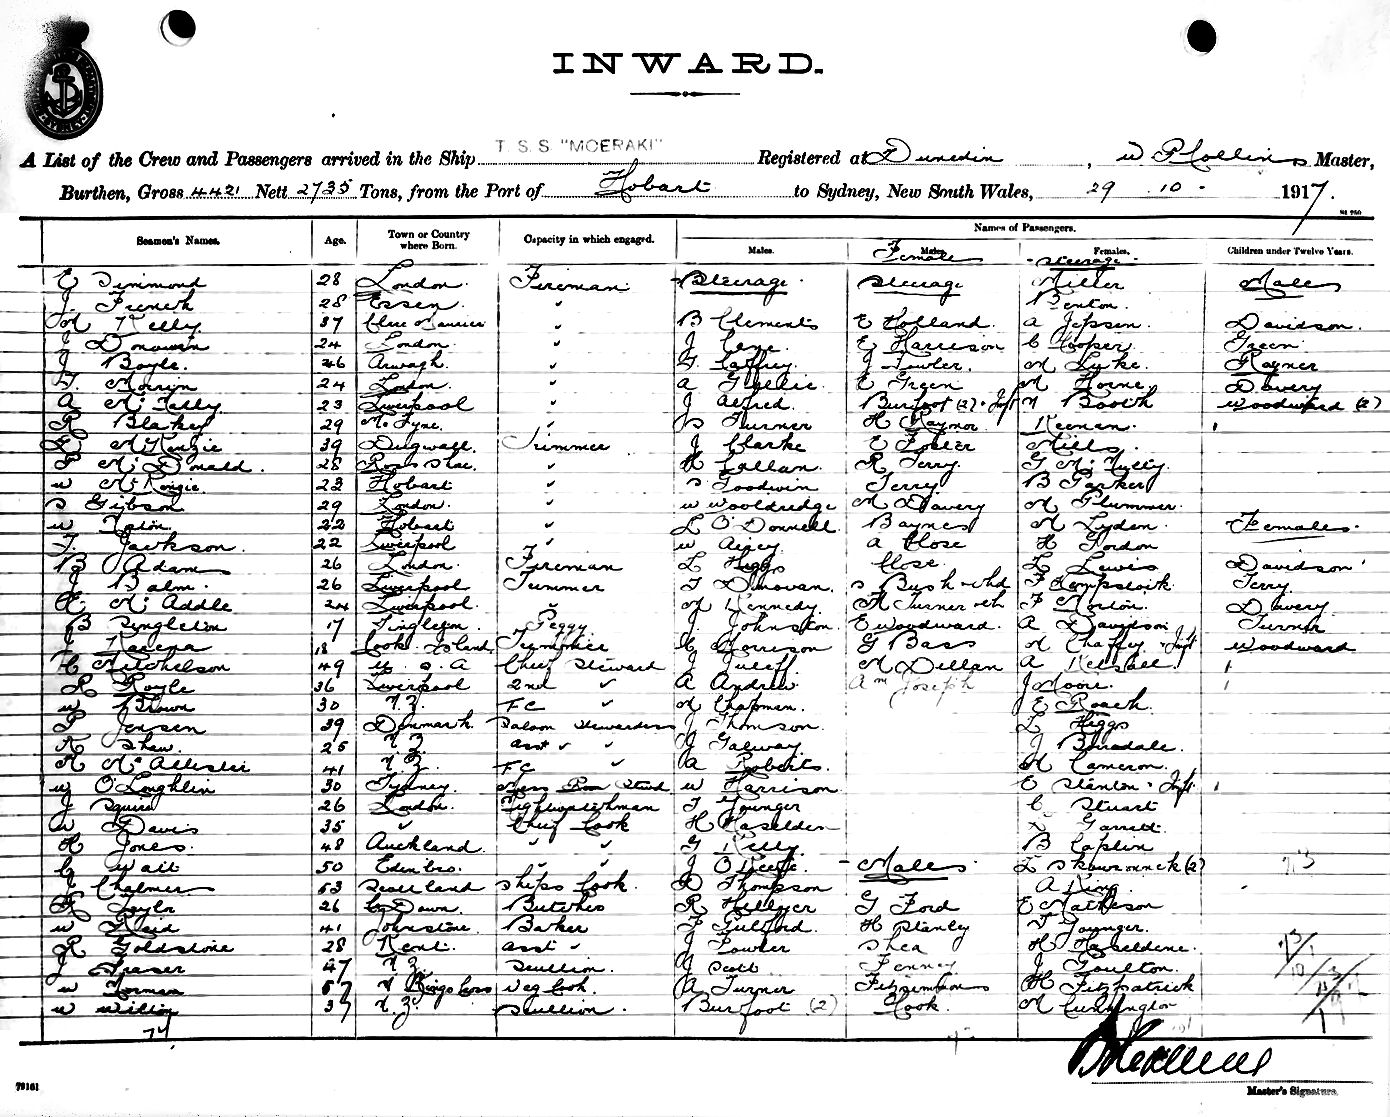 INWARD.
A List of the Crew and Passengers arrived in the Ship T. S. S. "MOERAKI" Registered at Dunedin, W P Collins Master,
Burthen, Gross 4421 Nett 2735 Tons, from the Port of Hobart to Sydney, New South Wales, 29 . 10 - 1917.
Names of Passengers.
Seamen's Names. Age. Town or Country where Born. Capacity in which engaged. Males. Females Females. Children under Twelve Years.
Steerage
E Dimmond 28 London Fireman Steerage Steerage Miller Males
J French 28 Essen " Benton
M Kelly 37 " B Clements E Holland A Jepsen Davidson
J Donovan 24 London " J Cane E Harrison C Hooper Green
J Boyle 46 Armagh " J Fowler M Lyke Rayner
T. Morrin 24 London " A Gillie E Green M Horne Davery
A McNally 23 Liverpool " J Alfred Burfoot (2) + Inft N Booth Woodward (2)
R Blakey 29 N. Tyne " Turner H Raynor Keenan
McKenzie 39 Dingwall Trimmer J Clarke E Foster Mills
P McDonald 28 Ross Shire " H Callan R Terry G McNulty
W McKenzie 23 Hobart " S Goodwin Terry B Parker
S Gibson 29 London " W Wooldredge M Davery M Plummer
W 22 Hobart " L O'Donnell Baynes M Lydon Females
T. Jackson 22 Liverpool " W Airey A Close H Gordon
B Adams 26 London Fireman L Higgs Close L Lewis Davidson
J Balm 26 Liverpool Trimmer T Donovan S Bush + chd F Hempstock Terry
McAddle 24 Liverpool " M Kennedy H Turner + ch F Morton Davery
B Singleton 17 Singleton Peggy J Johnston E Woodward A Davidson Turner
J 18 Cook Island Trimmer C Morrison G Bass M Chaffey + Inft Woodward
H Mitchelson 49 U. S. A Chief Steward J M Dillan A Kelshall
R Royle 36 Liverpool 2nd " A Andrew Joseph J Moore
W Brown 30 N.Z. FC " M Chapman E Roach
P Jensen 39 Denmark Saloon Stewardess J Thomson L Higgs
R Shaw 25 N.Z. Asst " " J Galway J Barsdale
McAllister 41 N.Z. FC " A Roberts H Cameron
W O'Loughlin 30 Sydney Mess Room Stwd W Harrison E Stanton + Inft
J Squire 26 London Nightwatchman T Younger C Stuart
W Davis 35 " Chief Cook H Haselden Garrett
H Jones 48 Auckland " " G Kelly B Caplin
G Wait 50 Edinboro " " J O'Keefe Males L Skowronnek (2)
J Chalmers 53 Scotland Ships Cook D Thompson A King
R Taylor 26 Co Down Butcher R Hillyer G Ford E Mathieson
W Reid 41 Johnstone Baker F Gulliford H Stanley Younger
R Goldstone 28 Kent Asst " J Fowler Shea H Haseldene
J Fraser 47 N.Z. Scullion J Scott Fenney J Goulton
W Norman 57 N Kings Cross Veg Cook A Turner Fitzsimmons H Fitzpatrick
W Wilton 37 N.Z. Scullion Burfoot (2) Cook M Cunnington
74
79161
Master's Signature.